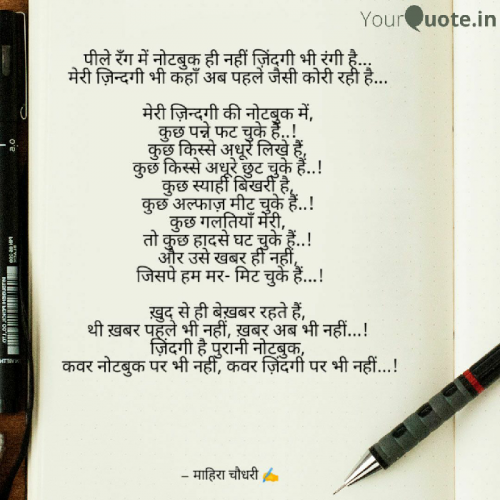 YourQuote.in
पीले रँग में नोटबुक ही नहीं ज़िंदगी भी रंगी है...
मेरी ज़िन्दगी भी कहाँ अब पहले जैसी कोरी रही है...
मेरी ज़िन्दगी की नोटबुक में,
कुछ पन्ने फट चुके हैं..!
कुछ किस्से अधूरे लिखे हैं,
कुछ किस्से अधूरे छुट चुके हैं..!
कुछ स्याही बिखरी है,
कुछ अल्फाज़ मीट चुके हैं..!
कुछ गलतियाँ मेरी,
तो कुछ हादसे घट चुके हैं..!
और उसे खबर ही नहीं,
जिसपे हम मर- मिट चुके हैं...!
ख़ुद से ही बेख़बर रहते हैं,
थी ख़बर पहले भी नहीं, ख़बर अब भी नहीं...!
ज़िंदगी है पुरानी नोटबुक,
कवर नोटबुक पर भी नहीं, कवर ज़िंदगी पर भी नहीं...!
– माहिरा चौधरी ✍